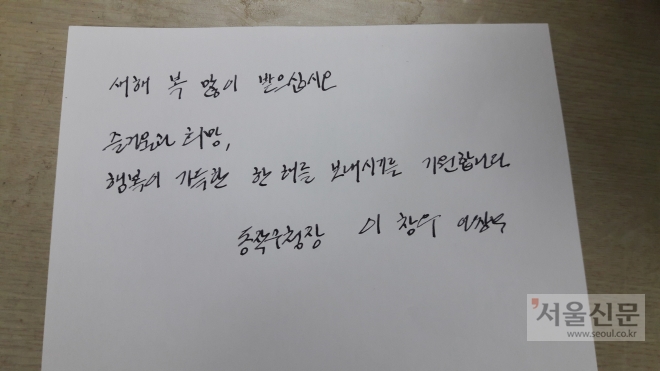 새해 복 많이 받으십시오
즐거움과 희망,
행복이 가득한 한 해를 보내시기를 기원합니다
동작구청장 이 창우 이창우
서울신문
www.seoul.co.kr